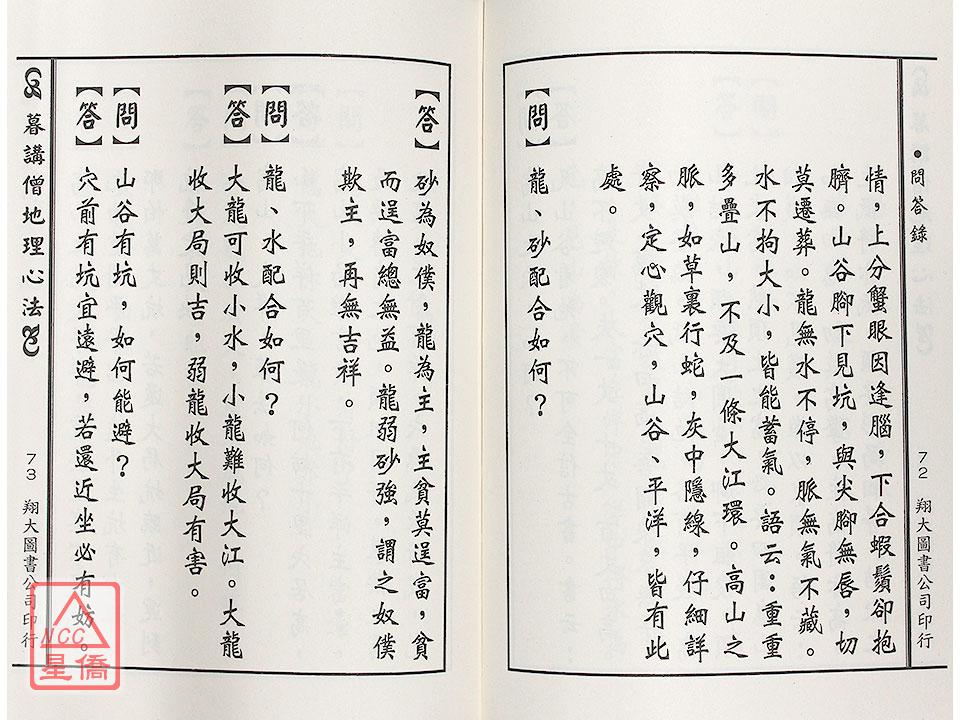 •問答錄
72 翔大圖書公司印行
情，上分蟹眼因逢腦，下合蝦鬚卻抱
臍。山谷腳下見坑，與尖腳無唇，切
莫遷葬。龍無水不停，脈無氣不藏。
水不拘大小，皆能蓄氣。語云：重重
多疊山，不及一條大江環。高山之
脈，如草裏行蛇，灰中隱線，仔細詳
察，定心觀穴，山谷、平洋，皆有此
處。
【問】龍、砂配合如何？
【答】砂為奴僕，龍為主，主貧莫逞富，貧
而逞富總無益。龍弱砂強，謂之奴僕
欺主，再無吉祥。
【問】龍、水配合如何？
【答】大龍可收小水，小龍難收大江。大龍
收大局則吉，弱龍收大局有害。
【問】山谷有坑，如何能避？
【答】穴前有坑宜遠避，若還近坐必有妨。
暮講僧地理心法
73 翔大圖書公司印行
NCC
星僑